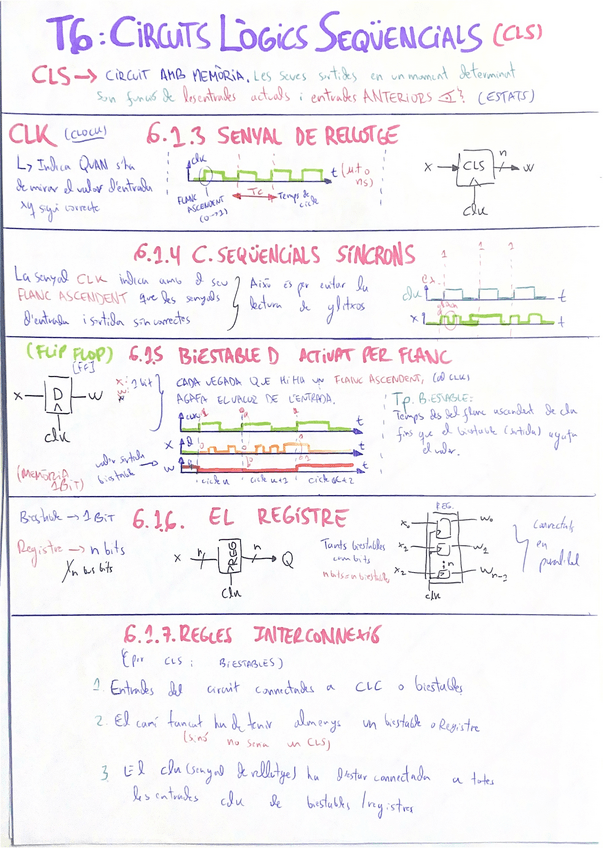 T6: CIRCUITS LÒGICS SEQÜENCIALS (CLS)
CLS → CIRCUIT AMB MEMÒRIA. Les seves sortides en un moment determinat
són funció de les entrades actuals i entrades ANTERIORS (ESTATS)
CLK (CLOCK)
6.1.3 SENYAL DE RELLOTGE
L> Indica QUAN s'ha
de mirar el valor d'entrada
xq sigui correcte
clk
t
FLANC
ASCENDENT
(0→1)
Tc
Temps de
cicle
X → CLS → W
n
clk
6.1.4 C. SEQÜENCIALS SÍNCRONS
La senyal CLK indica amb el seu
FLANC ASCENDENT que les senyals
d'entrada i sortida són correctes
Això és per evitar la
lectura de glitxos
1 1 1
clk
t
X
t
(FLIP FLOP)
[FF]
6.1.5 BIESTABLE D ACTIVAT PER FLANC
X D W
clk
X: 1 bit
W:
CADA VEGADA QUE HI HA UN FLANC ASCENDENT, (del CLK)
AGAFA EL VALOR DE L'ENTRADA.
t
X
t
W
t
cicle k cicle k+1 cicle k+2
valor sortida
biestable
(MEMÒRIA
1 BIT)
Tp. BIESTABLE:
Temps des del flanc ascendent de clk
fins que el biestable (sortida) agafa
el valor.
Biestable → 1 BIT
Registre → n bits
n bus bits
6.1.6. EL REGISTRE
X n REG n Q
clk
Tants biestables
com bits
n bits = n biestables
REG.
W0
W1
Wn-1
clk
Connectats
en
paral·lel
6.1.7. REGLES INTERCONNEXIÓ
(per CLS i BIESTABLES)
1. Entrades del circuit connectades a CLC o biestables
2. El camí tancat ha de tenir almenys un biestable o Registre
(sinó no seria un CLS)
3. El clk (senyal de rellotge) ha d'estar connectada a totes
les entrades clk de biestables / registres